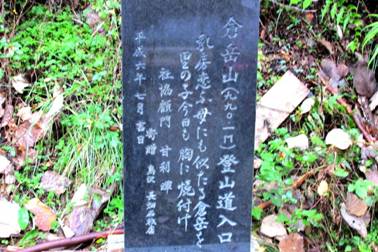 倉岳山(九九〇・一M)登山道入口
乳房恋ふ母にも似たる倉岳を
里の子今日も胸に焼付け
社協顧門 甘羽曙
平成六年七月吉日
寄贈 鳥沢 長加石材店